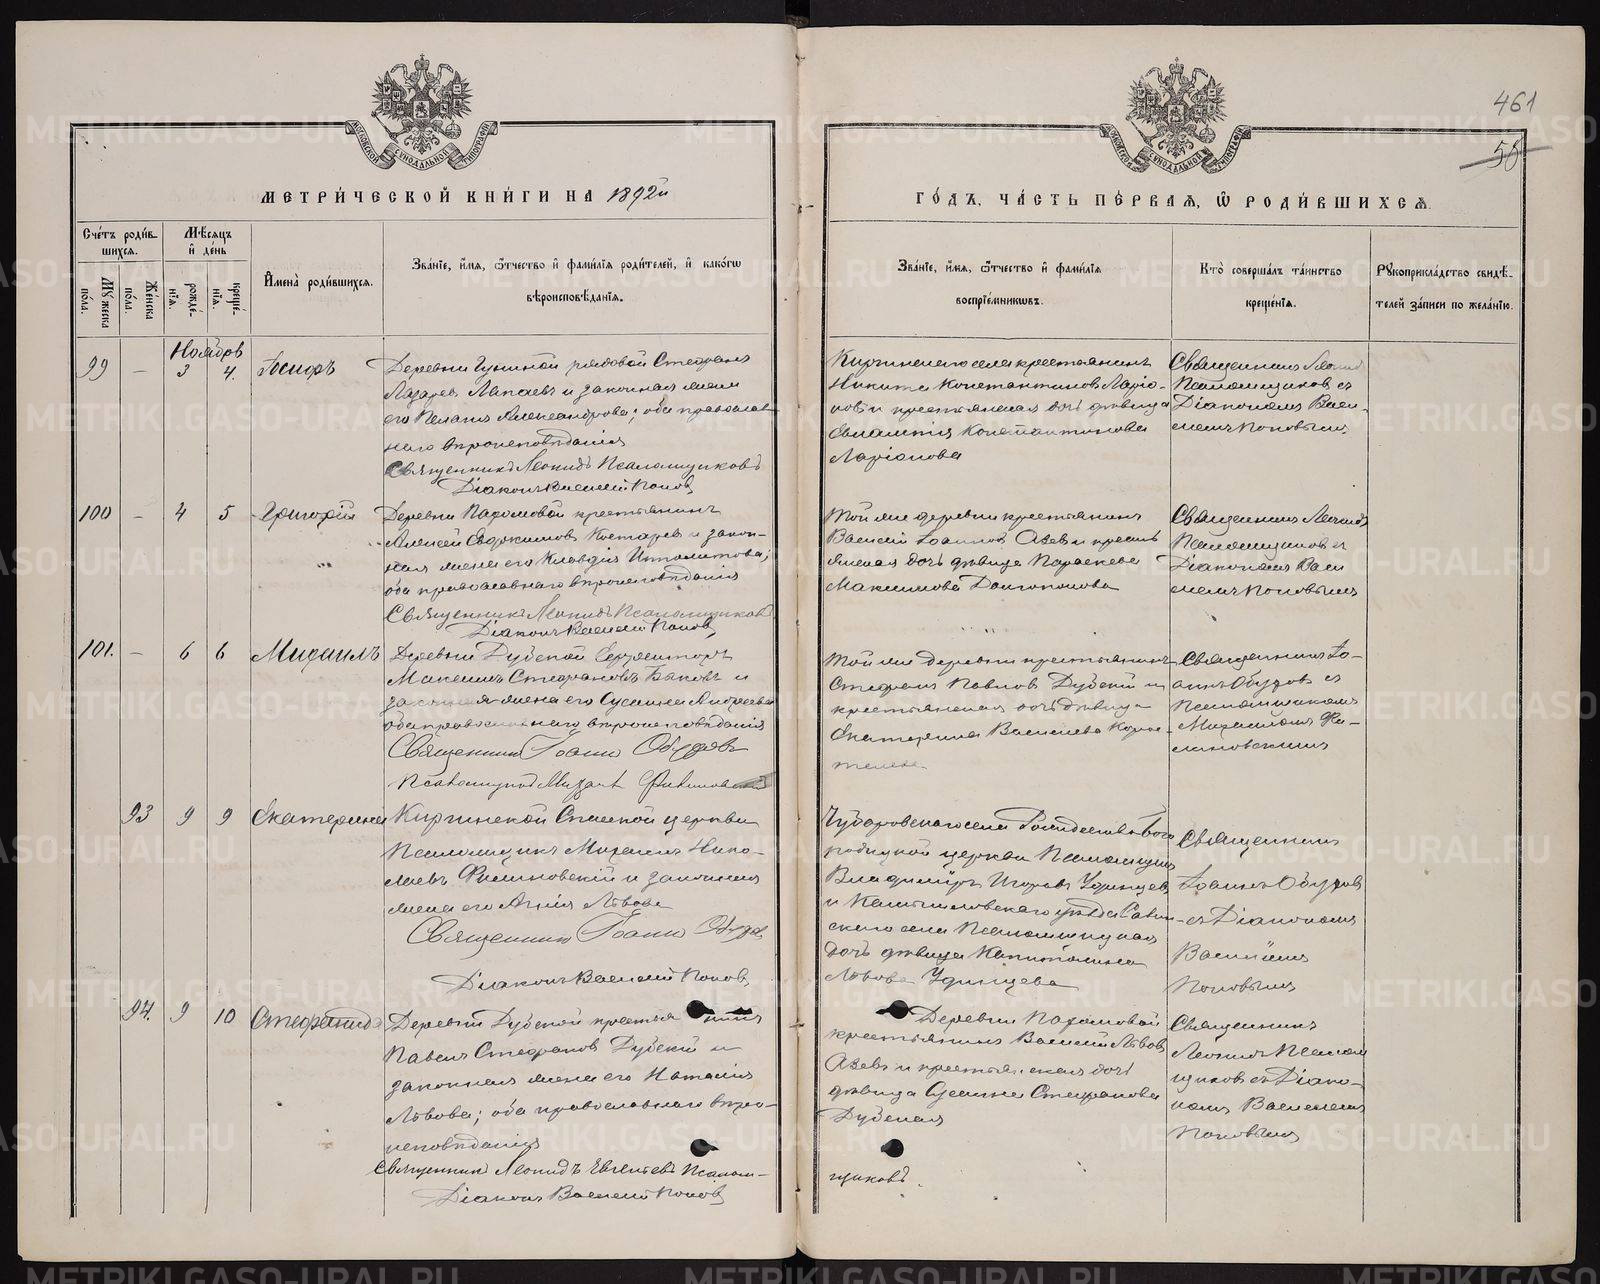 461
58
МОСКОВСКОЙ СѴНОДАЛЬНОЙ ТИПОГРАФІИ
МЕТРИ́ЧЕСКОЙ КНИ́ГИ НА 1892й
ГО́ДЪ, ЧА́СТЬ ПЕ́РВАЯ, Ѡ РОДИ́ВШИХСЯ.
Сче́тъ роди́в-
шихся.
Мꙋ́жеска по́ла.
Же́нска по́ла.
Мѣ́сяцъ
и҆ де́нь
рожде́-
нїя.
креще́-
нїя.
И҆мена̀ роди́вшихся.
Зва́нїе, и҆́мя, ѻ҆́тчество и҆ фами́лїя роди́телей, и҆ како́гѡ
вѣроисповѣ́данїя.
Зва́нїе, и҆́мя, ѻ҆́тчество и҆ фами́лїя
воспрїе́мникѡвъ.
Кто̀ соверша́лъ та́инство
креще́нїя.
Рꙋкоприкла́дство свидѣ́-
телей за́писи по жела́нїю.
Ноябрь
99 — 3 4. Іосифъ
Деревни рядовой Стефанъ
Лазаревъ и законная жена
его Пелагія Александрова; оба православ-
наго вѣроисповѣданія
Священникъ Леонидъ Псаломщиковъ
Діаконъ Василій Поповъ
Киргинскаго села крестьянинъ
Никита Константиновъ Ларіо-
новъ и крестьянская дочь дѣвица
Евлампія Константинова
Ларіонова
Священникъ Леонид
Псаломщиковъ съ
Діакономъ Васи-
ліемъ Поповымъ
100 — 4 5 Григорій
Деревни Пахомовой крестьянинъ
Алексѣй Костаревъ и закон-
ная жена его Клавдія Ипполитова;
оба православнаго вѣроисповѣданія
Священникъ Леонидъ Псаломщиковъ
Діаконъ Василій Поповъ
Той же деревни крестьянинъ
Василій Іоанновъ Авевъ и кресть
янская дочь дѣвица Параскева
Максимова Долгополова
Священникъ Леонидъ
Псаломщиковъ съ
Діакономъ Васи
ліемъ Поповымъ
101. — 6 6 Михаилъ
Деревни Дубской
Максимъ Стефановъ Быковъ и
законная жена его Сусанна Андреева
оба православнаго вѣроисповѣданія
Священникъ Іоаннъ Обуховъ
Псаломщикъ Михаилъ Филиновскій
Той же деревни крестьянинъ
Стефанъ Павловъ Дубскій и
крестьянская дочь дѣвица
Екатерина Васильева
Священникъ Іо-
аннъ Обуховъ съ
Псаломщикомъ
Михаиломъ Фи-
линовскимъ
93 9 9 Екатерина
Киргинской Спасской церкви
Псаломщикъ Михаилъ Нико-
лаевъ Филиновскій и законная
жена его Агнія Львова
Священникъ Іоаннъ Обухов
Діаконъ Василій Поповъ
Чубаровскаго села Рождество Бого
родицкой церкви Псаломщикъ
Владиміръ Игоревъ Удинцевъ
и Камышловскаго уѣзда
скаго села Псаломщицкая
дочь дѣвица Капитолина
Львова Удинцева
Священникъ
Іоаннъ Обуховъ
съ Діакономъ
Василіемъ
Поповымъ
94. 9 10 Стефанида
Деревни Дубской крестьянинъ
Павелъ Стефановъ Дубскій и
законная жена его Наталія
Львова; оба православнаго вѣро-
исповѣданія
Священникъ Леонидъ Евгеніевъ Псалом-
щиковъ.
Діаконъ Василій Поповъ
Деревни Пахомовой
крестьянинъ Василій Львовъ
Авевъ и крестьянская дочь
дѣвица Сусанна Стефанова
Дубская
Священникъ
Леонидъ Псалом
щиковъ съ Діако-
номъ Василіемъ
Поповымъ
METRIKI.GASO-URAL.RU